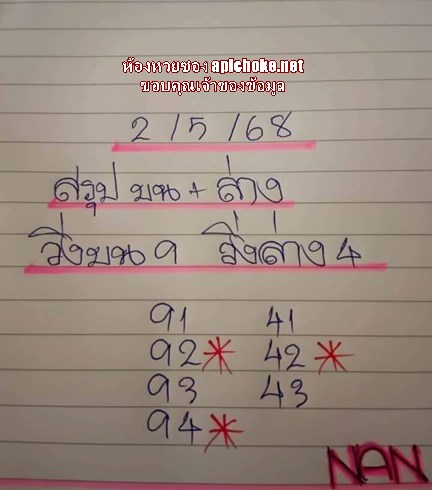 ห้องหวยซอง apichoke.net
ขอบคุณเจ้าของข้อมูล
2/5/68
สรุป บน + ล่าง
วิ่งบน 9 วิ่งล่าง 4
91 41
92* 42*
93 43
94*
NAN